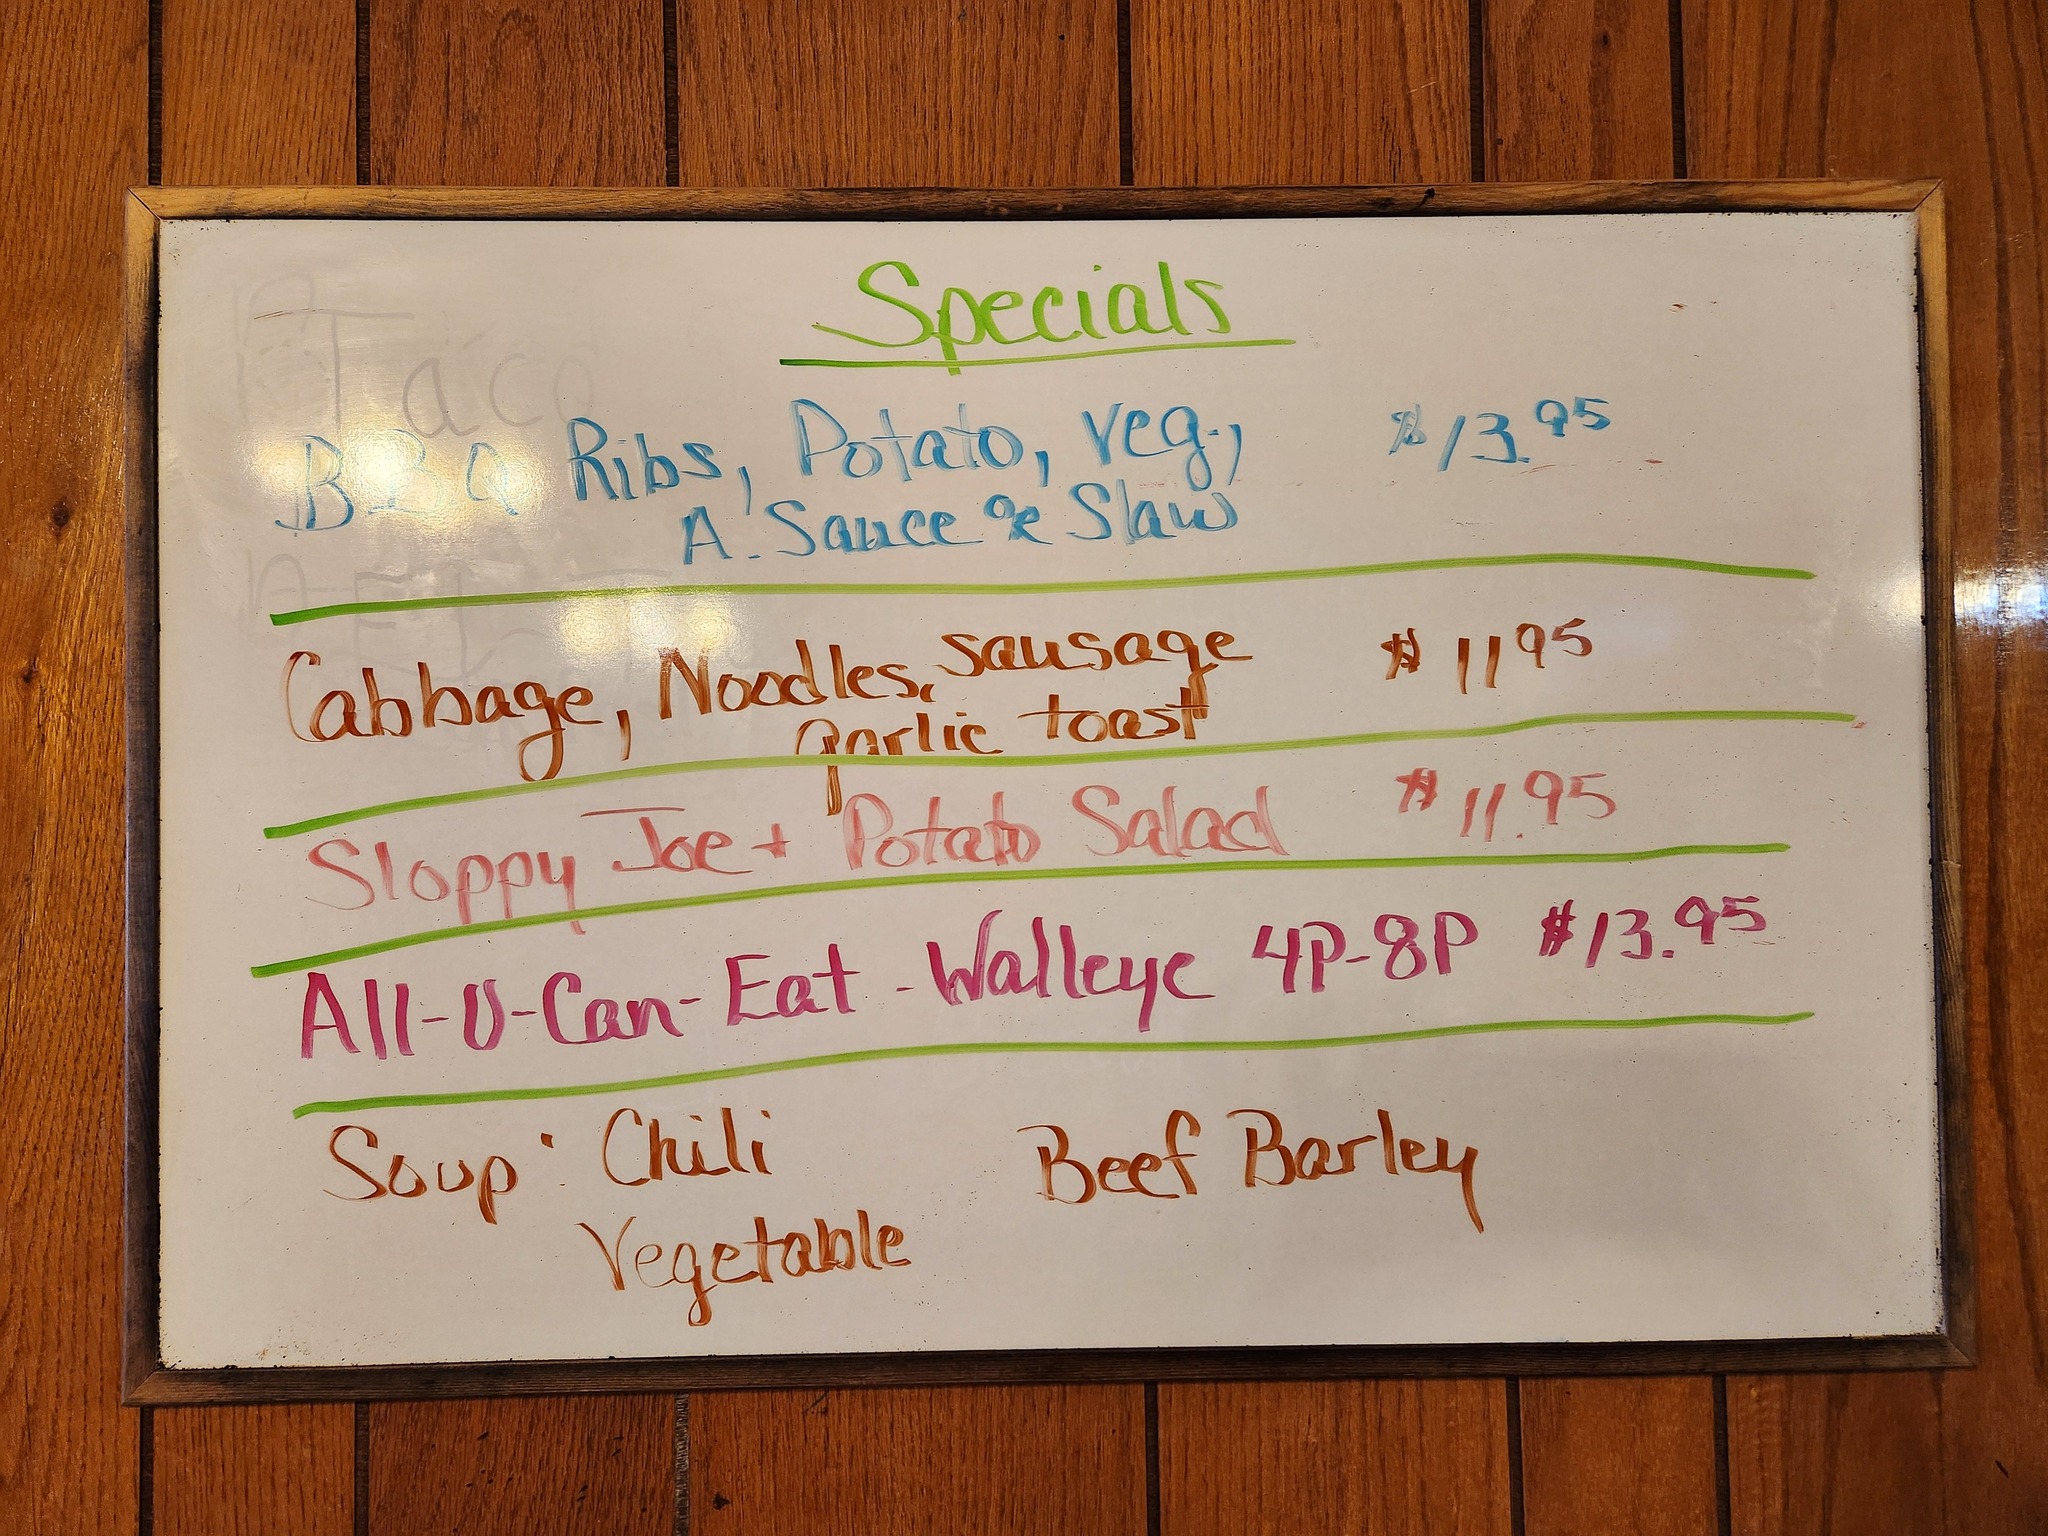 Specials
Taco
BBQ Ribs, Potato, Veg., $13.95
A. Sauce or Slaw
Cabbage, Noodles, sausage $11 95
garlic toast
Sloppy Joe + Potato Salad $11.95
All-U-Can-Eat - Walleye 4P-8P $13.95
Soup: Chili Beef Barley
Vegetable